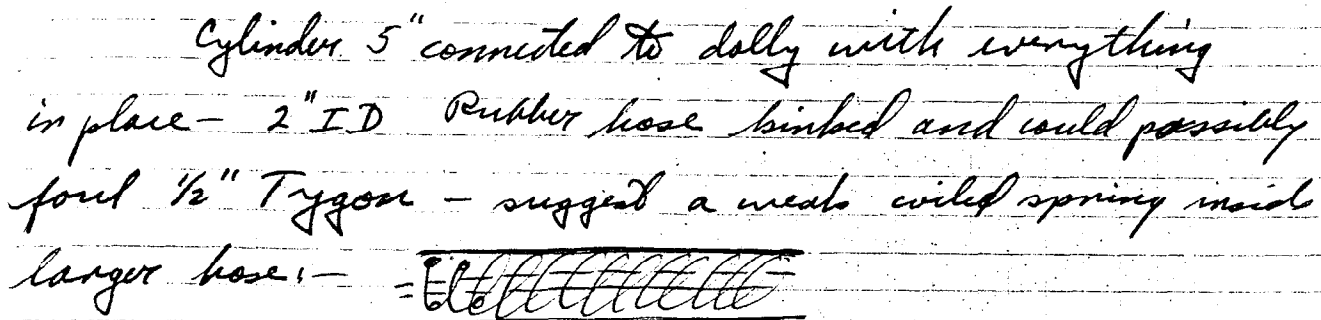 Cylinder 5" connected to dolly with everything
in place - 2" ID Rubber hose kinked and could possibly
foul 1/2" Tygon - suggest a weak coiled spring inside
larger hose:-